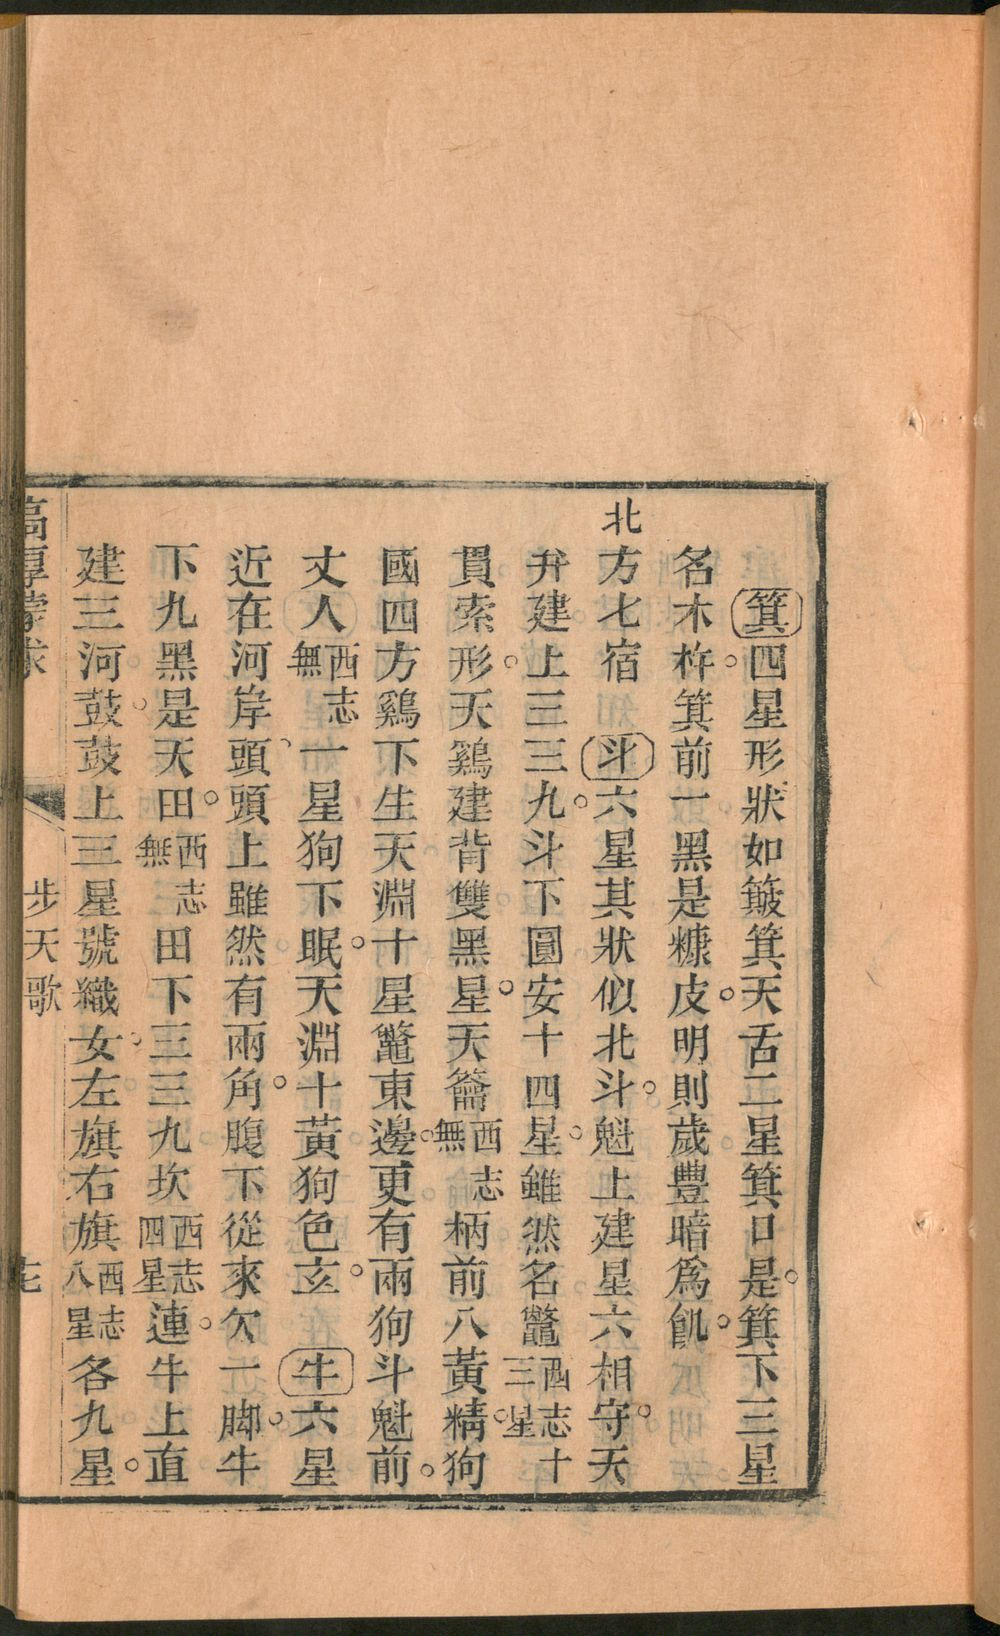 箕四星形狀如簸箕天舌二星箕口是箕下三星
名木杵箕前一黑是糠皮明則歲豐暗爲飢
北方七宿斗六星其狀似北斗魁上建星六相守天
弁建上三三九斗下圓安十四星雖然名鼈西志十三星
貫索形天鷄建背雙黑星天籥西志無柄前八黃精狗
國四方鷄下生天淵十星鼈東邊更有兩狗斗魁前
丈人西志無一星狗下眠天淵十黃狗色玄牛六星
近在河岸頭頭上雖然有兩角腹下從來欠一脚牛
下九黑是天田西志無田下三三九坎西志四星連牛上直
建三河鼓鼓上三星號織女左旗右旗西志八星各九星
高厚蒙求
步天歌